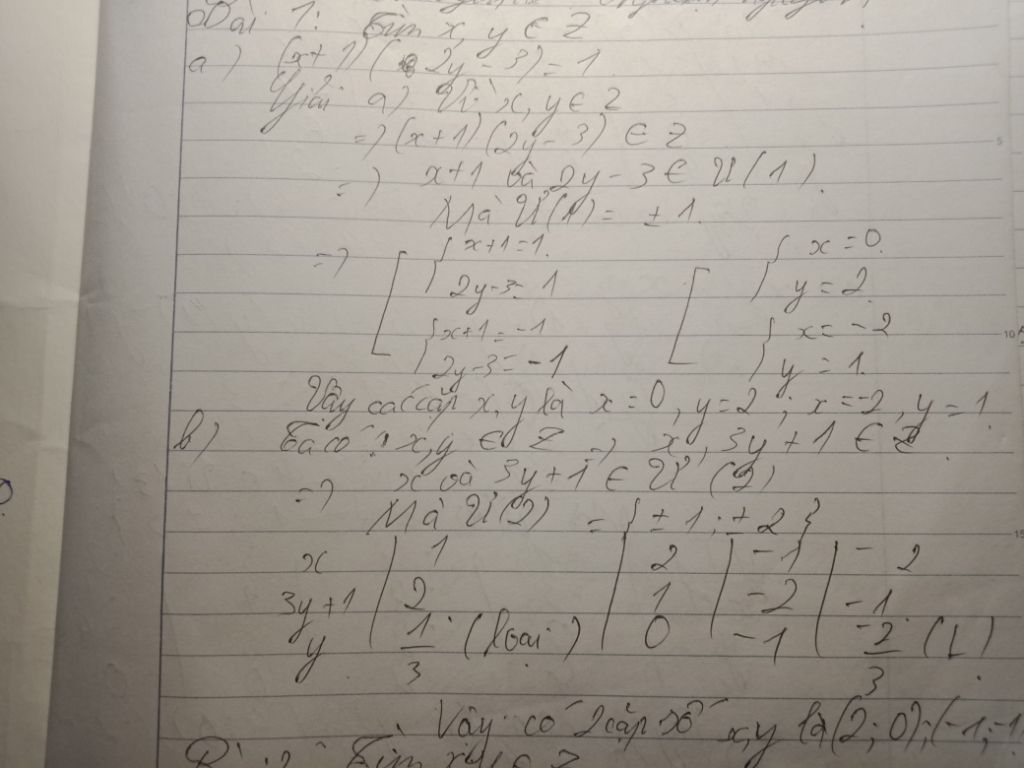 Bài 1: Tìm x, y ∈ Z
a) (x+1)(2y-3)=1
Giải a) Vì x, y ∈ Z
=> (x+1)(2y-3) ∈ Z
=> x+1 và 2y-3 ∈ Ư(1).
Mà Ư(1) = ±1.
=> [ { x+1=1. [ { x=0.
2y-3=1 y=2
{ x+1=-1 { x=-2
2y-3=-1 y=1.
Vậy các cặp x, y là x=0, y=2; x=-2, y=1
b) Ta có: x, y ∈ Z => x, 3y+1 ∈ Z.
=> x và 3y+1 ∈ Ư(2)
Mà Ư(2) = {±1; ±2}
x | 1 | 2 | -1 | -2
3y+1 | 2 | 1 | -2 | -1
y | 1/3 (loại) | 0 | -1 | -2/3 (L)
Vậy có 2 cặp số x,y là (2; 0); (-1; -1
Tìm x, y ∈ Z